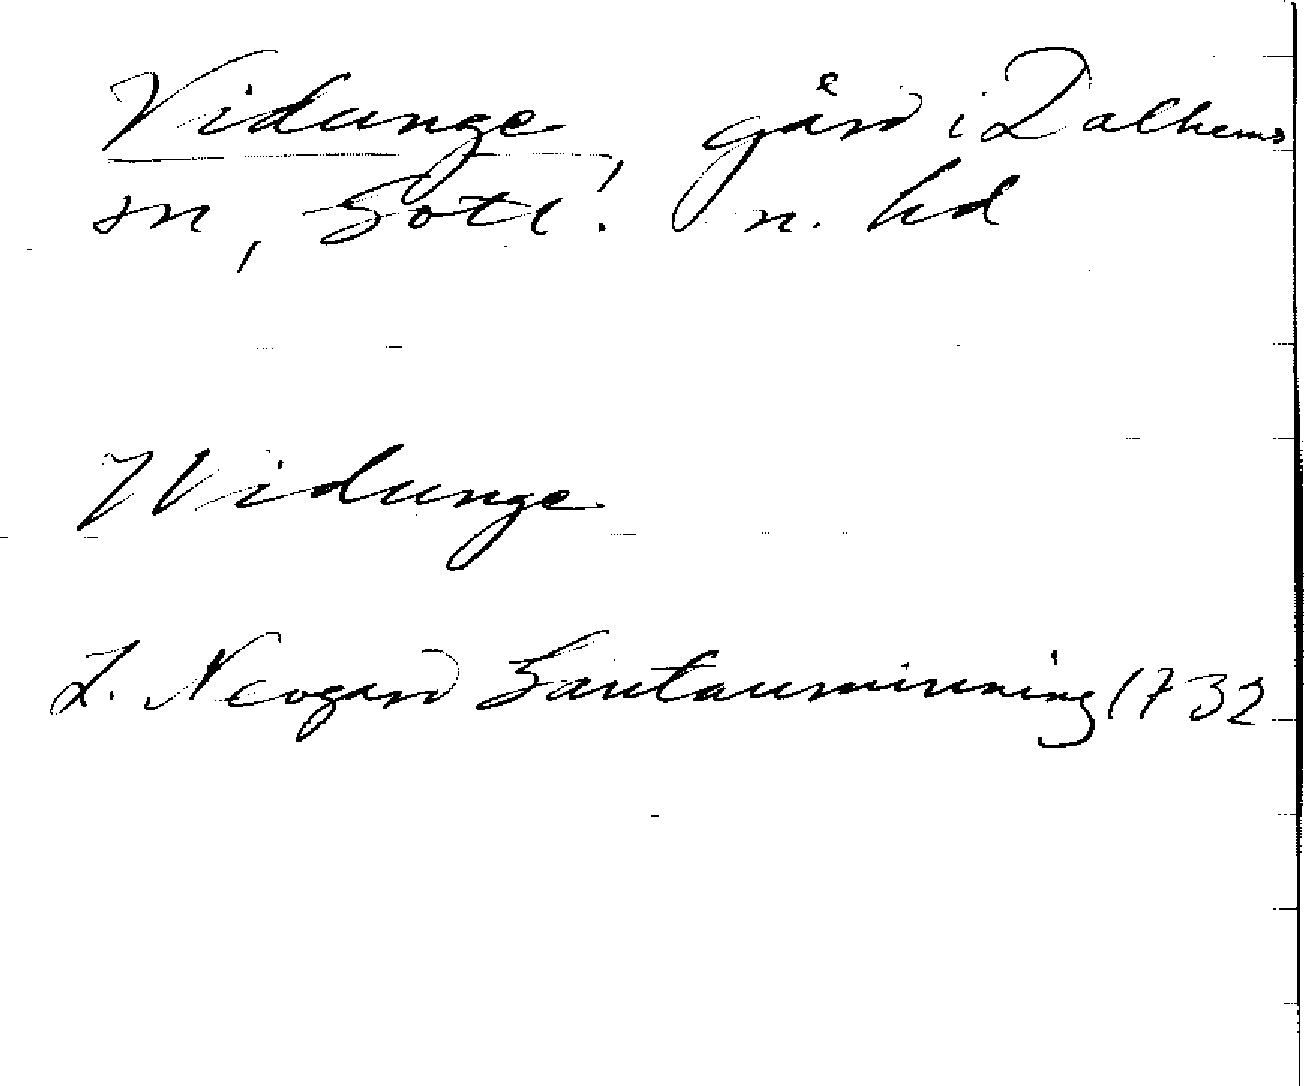 Vidunge, gård i Dalhems
sn, Gotl. n. hd
Widunge
L. Neogard Gautauminning 1732